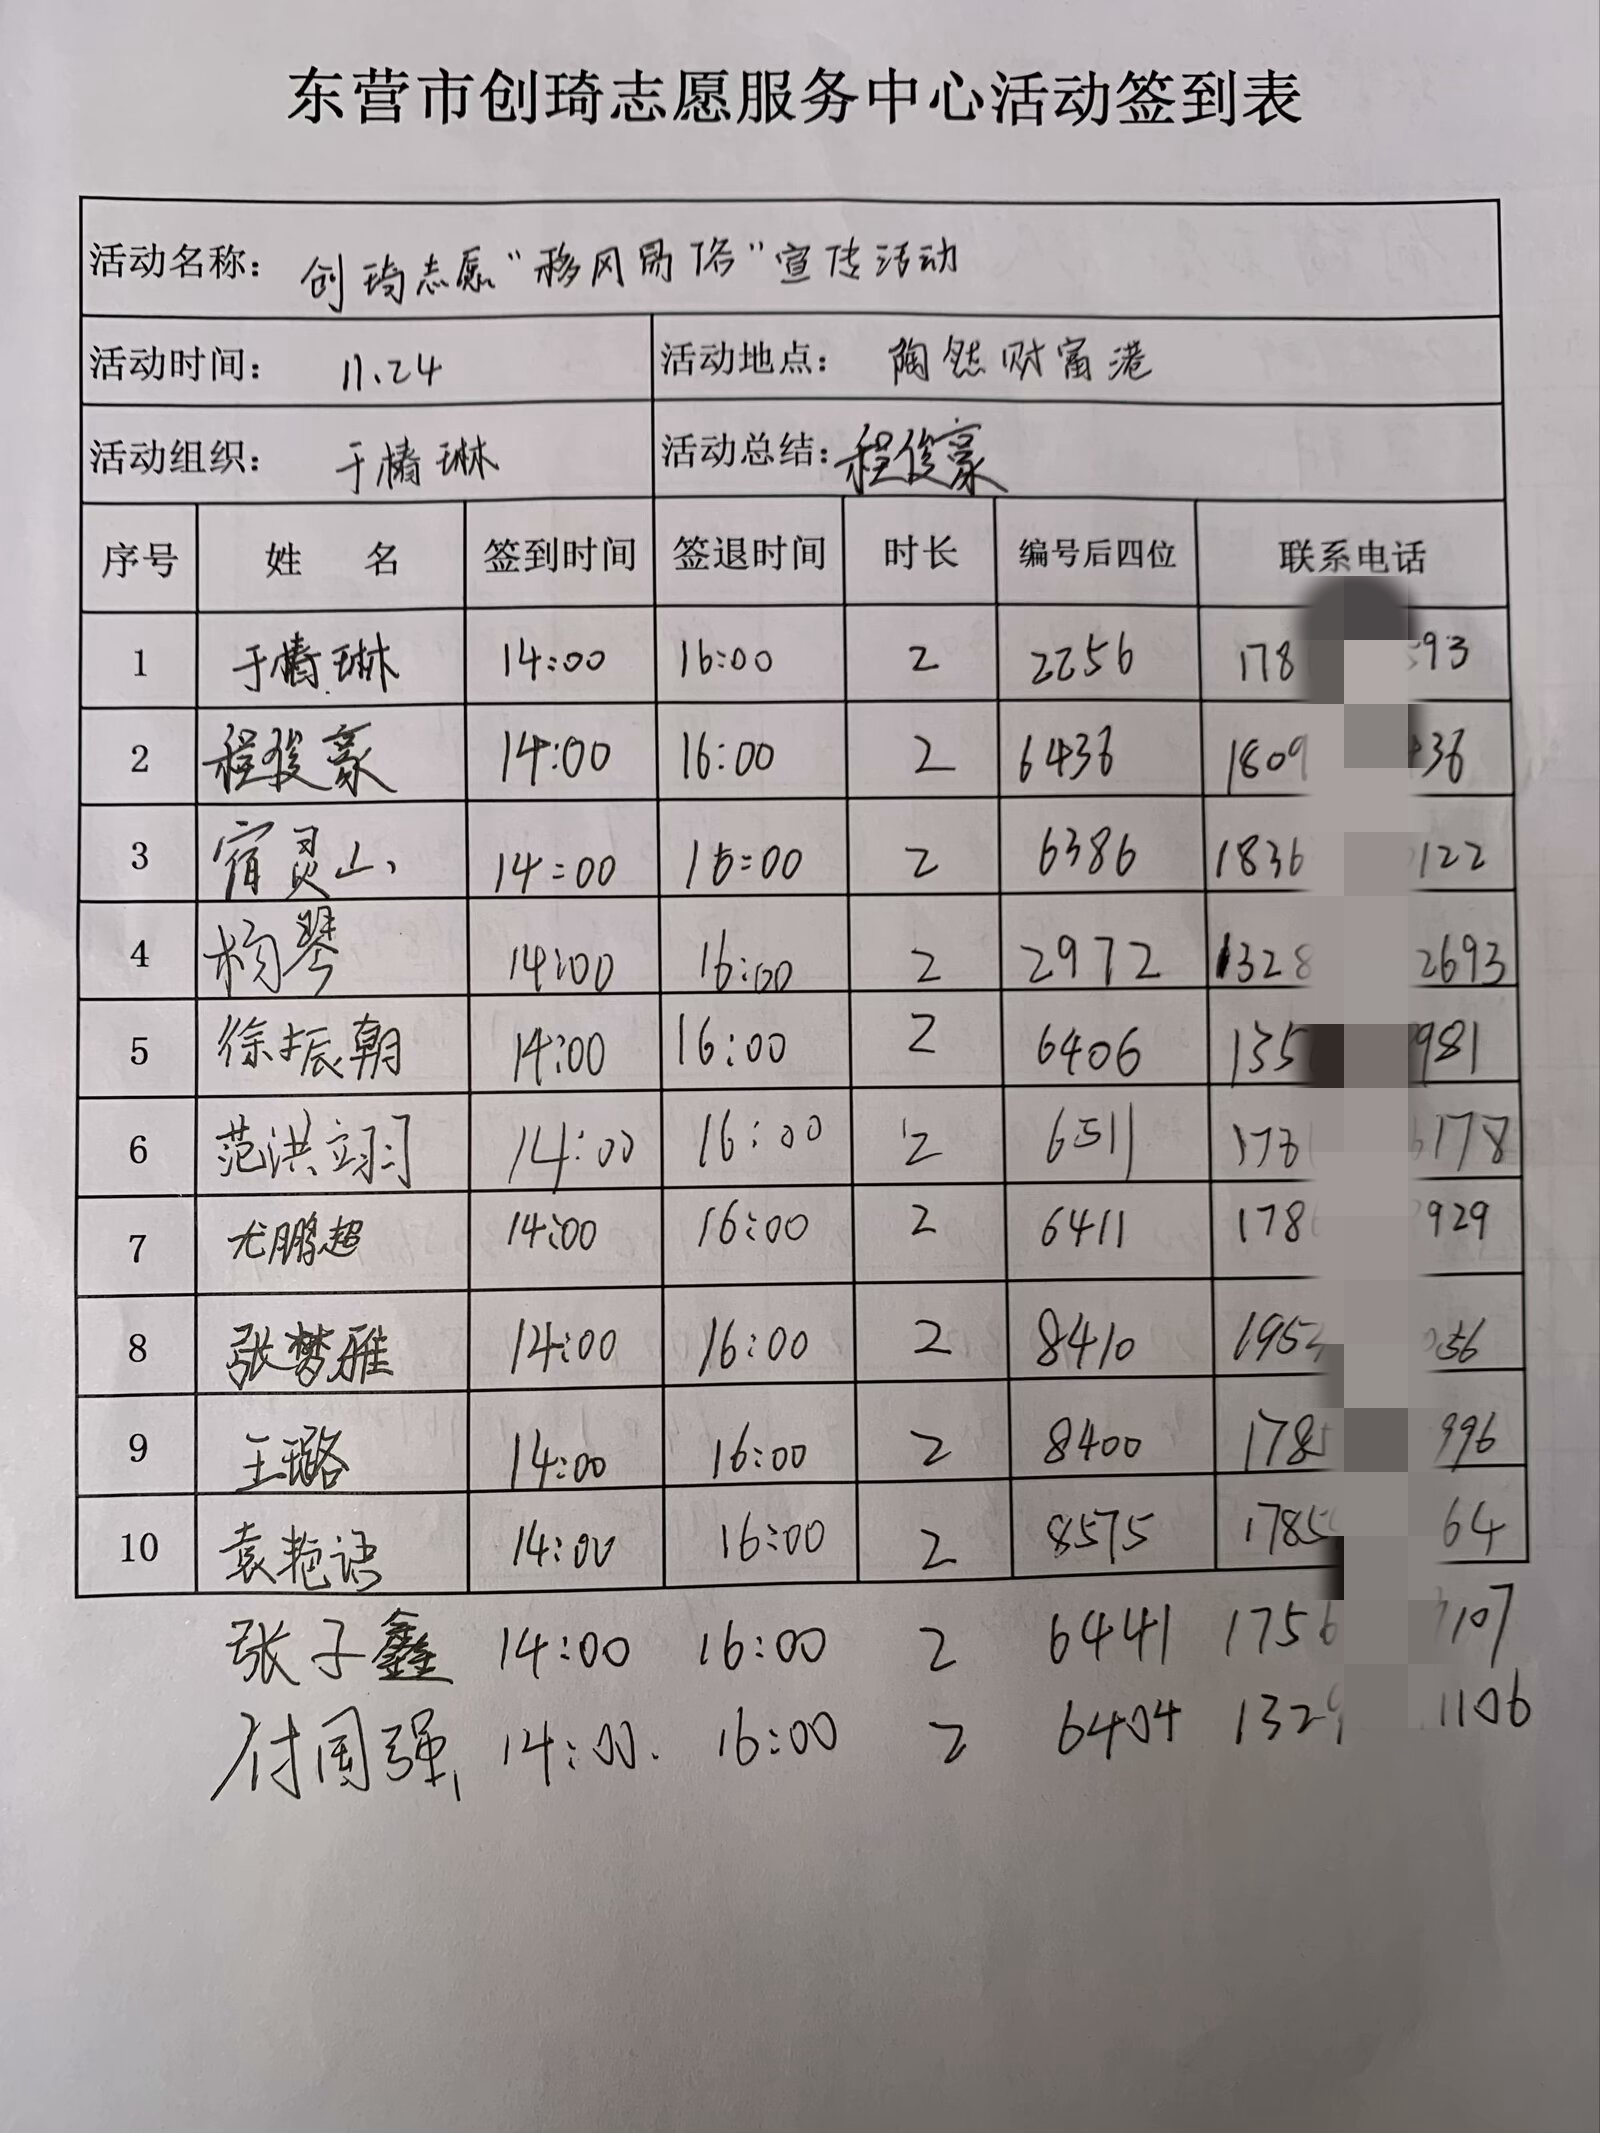 东营市创琦志愿服务中心活动签到表
活动名称： 创琦志愿“移风易俗”宣传活动
活动时间： 11.24 活动地点： 陶然财富港
活动组织： 于椿琳 活动总结： 程俊豪
序号 姓 名 签到时间 签退时间 时长 编号后四位 联系电话
1 于椿琳 14:00 16:00 2 2256 178 593
2 程俊豪 14:00 16:00 2 6436 1809 436
3 宿灵山 14:00 16:00 2 6386 1836 122
4 杨琴 14:00 16:00 2 2972 1328 2693
5 徐振朝 14:00 16:00 2 6406 135 981
6 范洪翊 14:00 16:00 2 6511 178 178
7 尤鹏超 14:00 16:00 2 6411 178 929
8 张梦雅 14:00 16:00 2 8410 195 56
9 王璐 14:00 16:00 2 8400 1785 996
10 袁艳语 14:00 16:00 2 8575 1785 64
张子鑫 14:00 16:00 2 6441 1756 107
付国强 14:00. 16:00 2 6404 132 1106